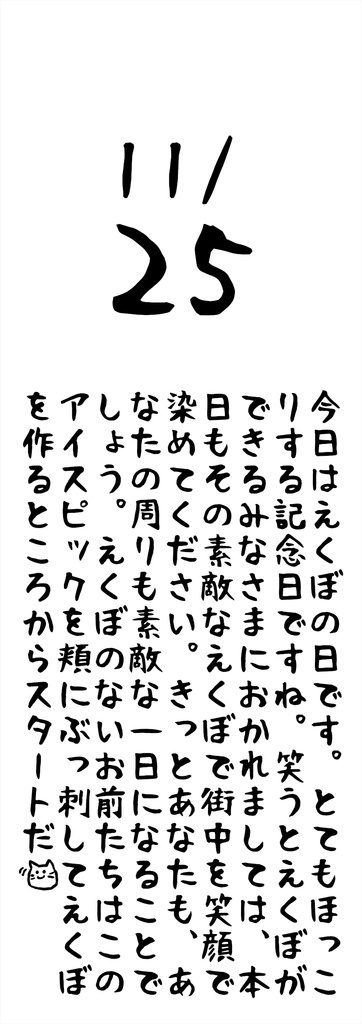 11/
25
今日はえくぼの日です。とてもほっこ
りする記念日ですね。笑うとえくぼが
できるみなさまにおかれましては、本
日もその素敵なえくぼで街中を笑顔で
染めてください。きっとあなたも、あ
なたの周りも素敵な一日になることで
しょう。えくぼのないお前たちはこの
アイスピックを頬にぶっ刺してえくぼ
を作るところからスタートだ